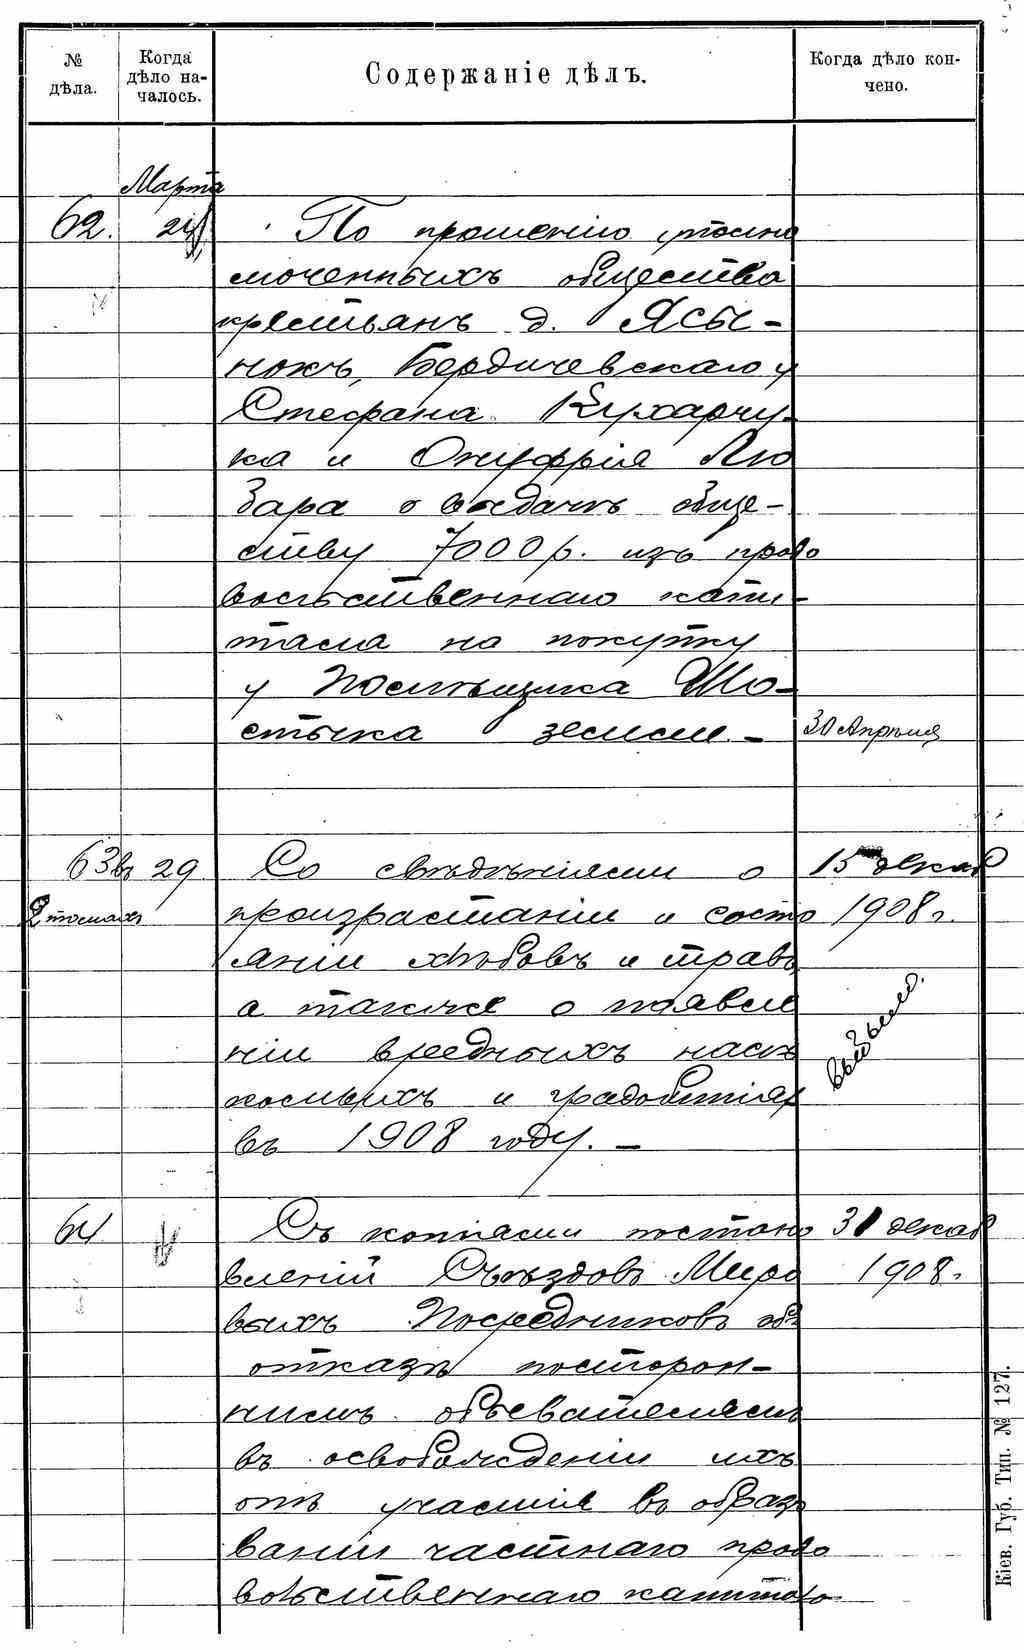 № дѣла.
Когда дѣло на-чалось.
Содержаніе дѣлъ.
Когда дѣло кон-чено.
Марта
62. По прошенію уполно
моченныхъ общества
крестьянъ д. Ясы-
нокъ, Бердичевскаго у
Стефана Кухарчу-
ка и Онуфрія Лю
Зара о выдачѣ обще-
ству 7000 р. изъ продо
вольственнаго капи-
тала на покупку
у Помѣщика Шо-
стыка земли. — 30 Апрѣля
63 въ 29 Со свѣдѣніями о 15 декаб
2 томахъ произрастаніи и состо 1908 г.
яніи хлѣбовъ и травъ
а также о появле
ніи вредныхъ насѣ
комыхъ и градобитіях
въ 1908 году. —
64 Съ копіями постано 31 декаб
вленій Съѣздовъ Миро 1908.
выхъ Посредниковъ объ
отказѣ посторон-
нимъ обывателямъ
въ освобожденіи ихъ
отъ участія въ образо
ваніи частнаго продо
вольственнаго капитала
Кіев. Губ. Тип. № 127.